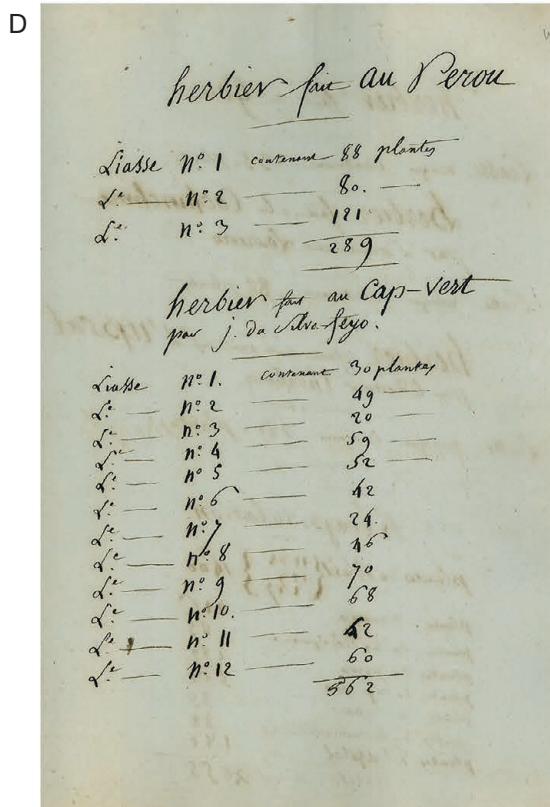 D
herbier fait au Perou
Liasse nº. 1 contenant 88 plantes
Lᵉ. nº. 2 —— 80. ——
Lᵉ. nº. 3 —— 121
289
herbier fait au Cap-vert
par j. da Silva feyo.
Liasse nº. 1. contenant 30 plantes
Lᵉ. — nº. 2 —— 49 ——
Lᵉ. — nº. 3 —— 20 ——
Lᵉ. — nº. 4 —— 59 ——
Lᵉ. — nº. 5 —— 52 ——
Lᵉ. — nº. 6 —— 42
Lᵉ. — nº. 7 —— 24.
Lᵉ. — nº. 8 —— 46
Lᵉ. — nº. 9 —— 70
Lᵉ. — nº. 10. —— 68
Lᵉ. — nº. 11 —— 42
Lᵉ. — nº. 12 —— 60
562